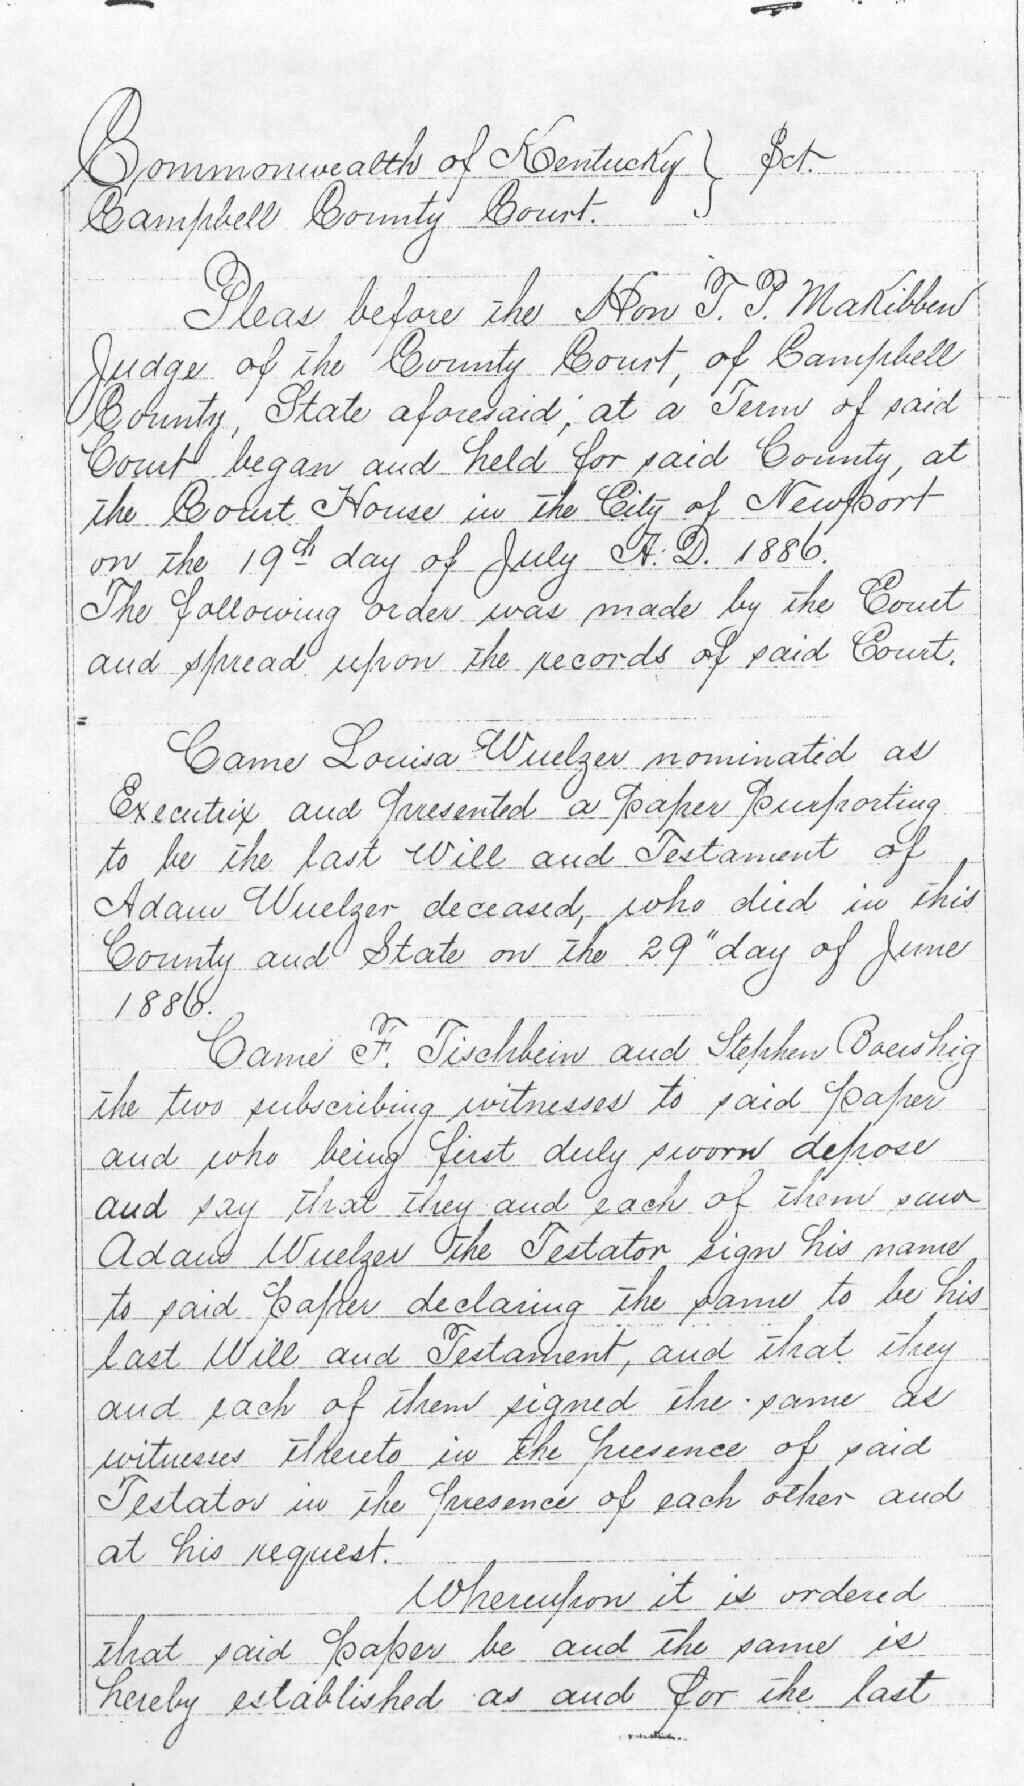 Commonwealth of Kentucky } Sct.
Campbell County Court.
Pleas before the Hon T. P. Makibben
Judge of the County Court, of Campbell
County, State aforesaid; at a Term of said
Court began and held for said County, at
the Court House in the City of Newport
on the 19th day of July A.D. 1886.
The following order was made by the Court
and spread upon the records of said Court.
Came Louisa Wuelzer nominated as
Executrix and presented a paper purporting
to be the last Will and Testament of
Adam Wuelzer deceased, who died in this
County and State on the 29" day of June
1886.
Came F. Tischbein and Stephen Boershig
the two subscribing witnesses to said paper
and who being first duly sworn depose
and say that they and each of them saw
Adam Wuelzer the Testator sign his name
to said paper declaring the same to be his
last Will and Testament, and that they
and each of them signed the same as
witnesses thereto in the presence of said
Testator in the presence of each other and
at his request.
Whereupon it is ordered
that said paper be and the same is
hereby established as and for the last